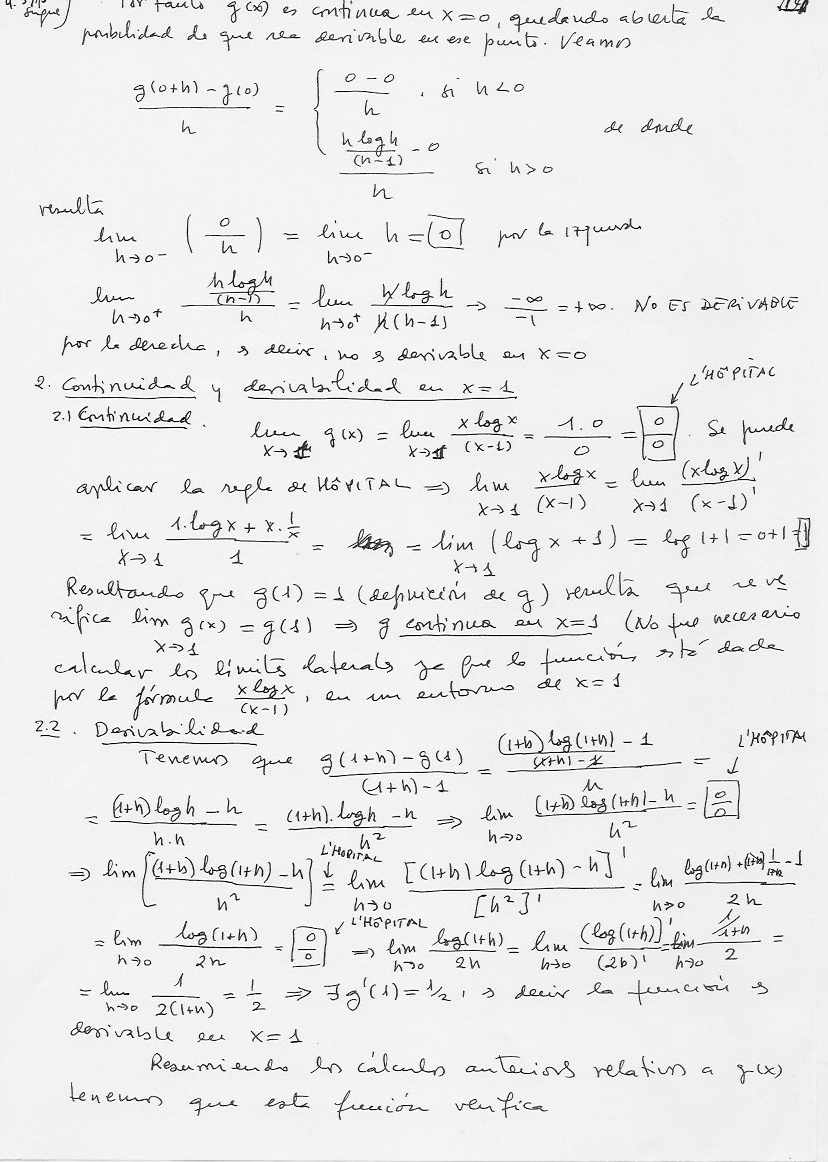 sigue) Por tanto g(x) es continua en x=0, quedando abierta la
posibilidad de que sea derivable en ese punto. Veamos
g(0+h) - g(0) / h = { 0-0 / h , si h<0
de donde
h log h / (h-1) - 0 / h si h>0
resulta
lim h→0⁻ (0/h) = lim h→0⁻ h = 0 por la izquierda
lim h→0⁺ (h log h / (h-1)) / h = lim h→0⁺ h log h / h(h-1) → -∞/-1 = +∞. NO ES DERIVABLE
por la derecha, es decir, no es derivable en x=0
2. Continuidad y derivabilidad en x=1
L'HÔPITAL
2.1 Continuidad. lim x→1 g(x) = lim x→1 x log x / (x-1) = 1.0 / 0 = 0/0. Se puede
aplicar la regla de HÔPITAL ⇒ lim x→1 x log x / (x-1) = lim x→1 (x log x)' / (x-1)'
= lim x→1 1.log x + x.1/x / 1 = = lim x→1 (log x + 1) = log 1+1 = 0+1 = 1
Resultando que g(1)=1 (definición de g) resulta que se ve
rifica lim x→1 g(x) = g(1) ⇒ g continua en x=1 (No fue necesario
calcular los límites laterales ya que la función está dada
por la fórmula x log x / (x-1), en un entorno de x=1
2.2. Derivabilidad
L'HÔPITAL
Tenemos que g(1+h) - g(1) / (1+h)-1 = ((1+h) log(1+h) / (1+h)-1 - 1) / h =
= (1+h) log h - h / h.h = (1+h).log h - h / h² ⇒ lim h→0 (1+h) log(1+h) - h / h² = 0/0
L'HOPITAL
⇒ lim [(1+h) log(1+h) - h / h²] = lim h→0 [(1+h) log(1+h) - h]' / [h²]' = lim h→0 log(1+h) + (1+h) 1/1+h - 1 / 2h
L'HÔPITAL
= lim h→0 log(1+h) / 2h = 0/0 ⇒ lim h→0 log(1+h) / 2h = lim h→0 (log(1+h))' / (2h)' = lim h→0 1/1+h / 2 =
= lim h→0 1 / 2(1+h) = 1/2 ⇒ ∃ g'(1) = 1/2, es decir la función es
derivable en x=1.
Resumiendo los cálculos anteriores relativos a g(x)
tenemos que esta función verifica